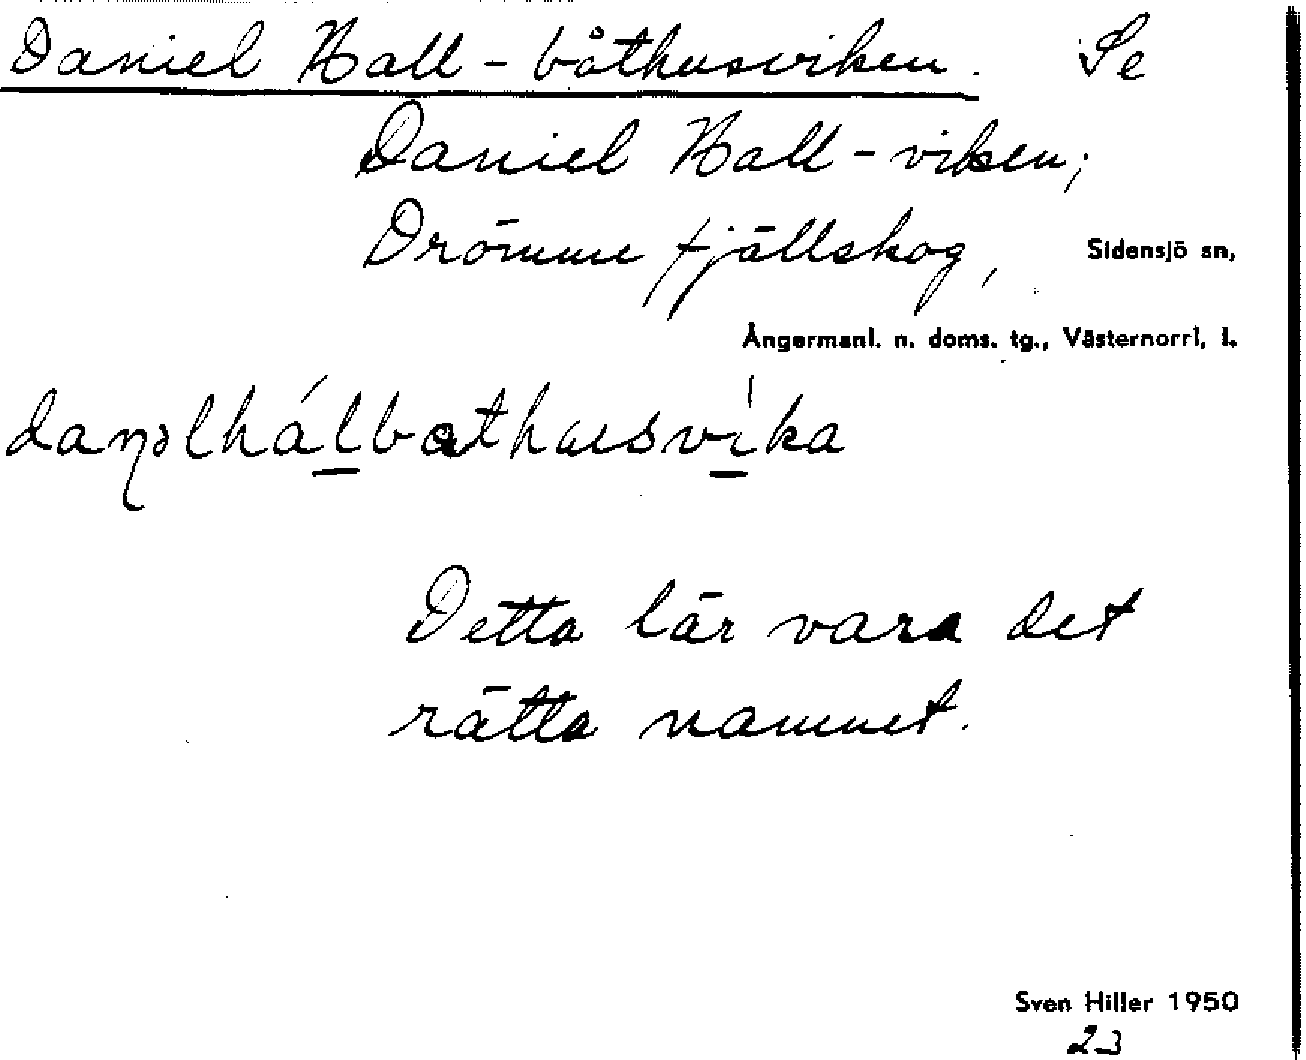 Daniel Hall-båthusviken. Se
Daniel Hall-viken;
Drömme fjällskog, Sidensjö sn,
Ångermanl. n. doms. tg., Västernorrl. l.
daŋəlhálbathusvíka
Detta lär vara det
rätta namnet.
Sven Hiller 1950
23